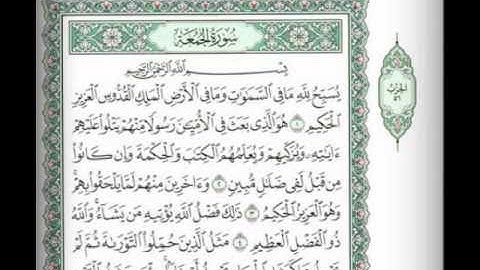 سُورَةُ الجُمُعَةِ
بِسْمِ ٱللَّهِ ٱلرَّحْمَٰنِ ٱلرَّحِيمِ
يُسَبِّحُ لِلَّهِ مَا فِي ٱلسَّمَٰوَٰتِ وَمَا فِي ٱلْأَرْضِ ٱلْمَلِكِ ٱلْقُدُّوسِ ٱلْعَزِيزِ
ٱلْحَكِيمِ ١ هُوَ ٱلَّذِي بَعَثَ فِي ٱلْأُمِّيِّـۧنَ رَسُولًا مِّنْهُمْ يَتْلُوا۟ عَلَيْهِمْ
ءَايَٰتِهِۦ وَيُزَكِّيهِمْ وَيُعَلِّمُهُمُ ٱلْكِتَٰبَ وَٱلْحِكْمَةَ وَإِن كَانُوا۟
مِن قَبْلُ لَفِي ضَلَٰلٍ مُّبِينٍ ٢ وَءَاخَرِينَ مِنْهُمْ لَمَّا يَلْحَقُوا۟ بِهِمْ
وَهُوَ ٱلْعَزِيزُ ٱلْحَكِيمُ ٣ ذَٰلِكَ فَضْلُ ٱللَّهِ يُؤْتِيهِ مَن يَشَآءُ وَٱللَّهُ
ذُو ٱلْفَضْلِ ٱلْعَظِيمِ ٤ مَثَلُ ٱلَّذِينَ حُمِّلُوا۟ ٱلتَّوْرَىٰةَ ثُمَّ لَمْ
الحزب
٥٦